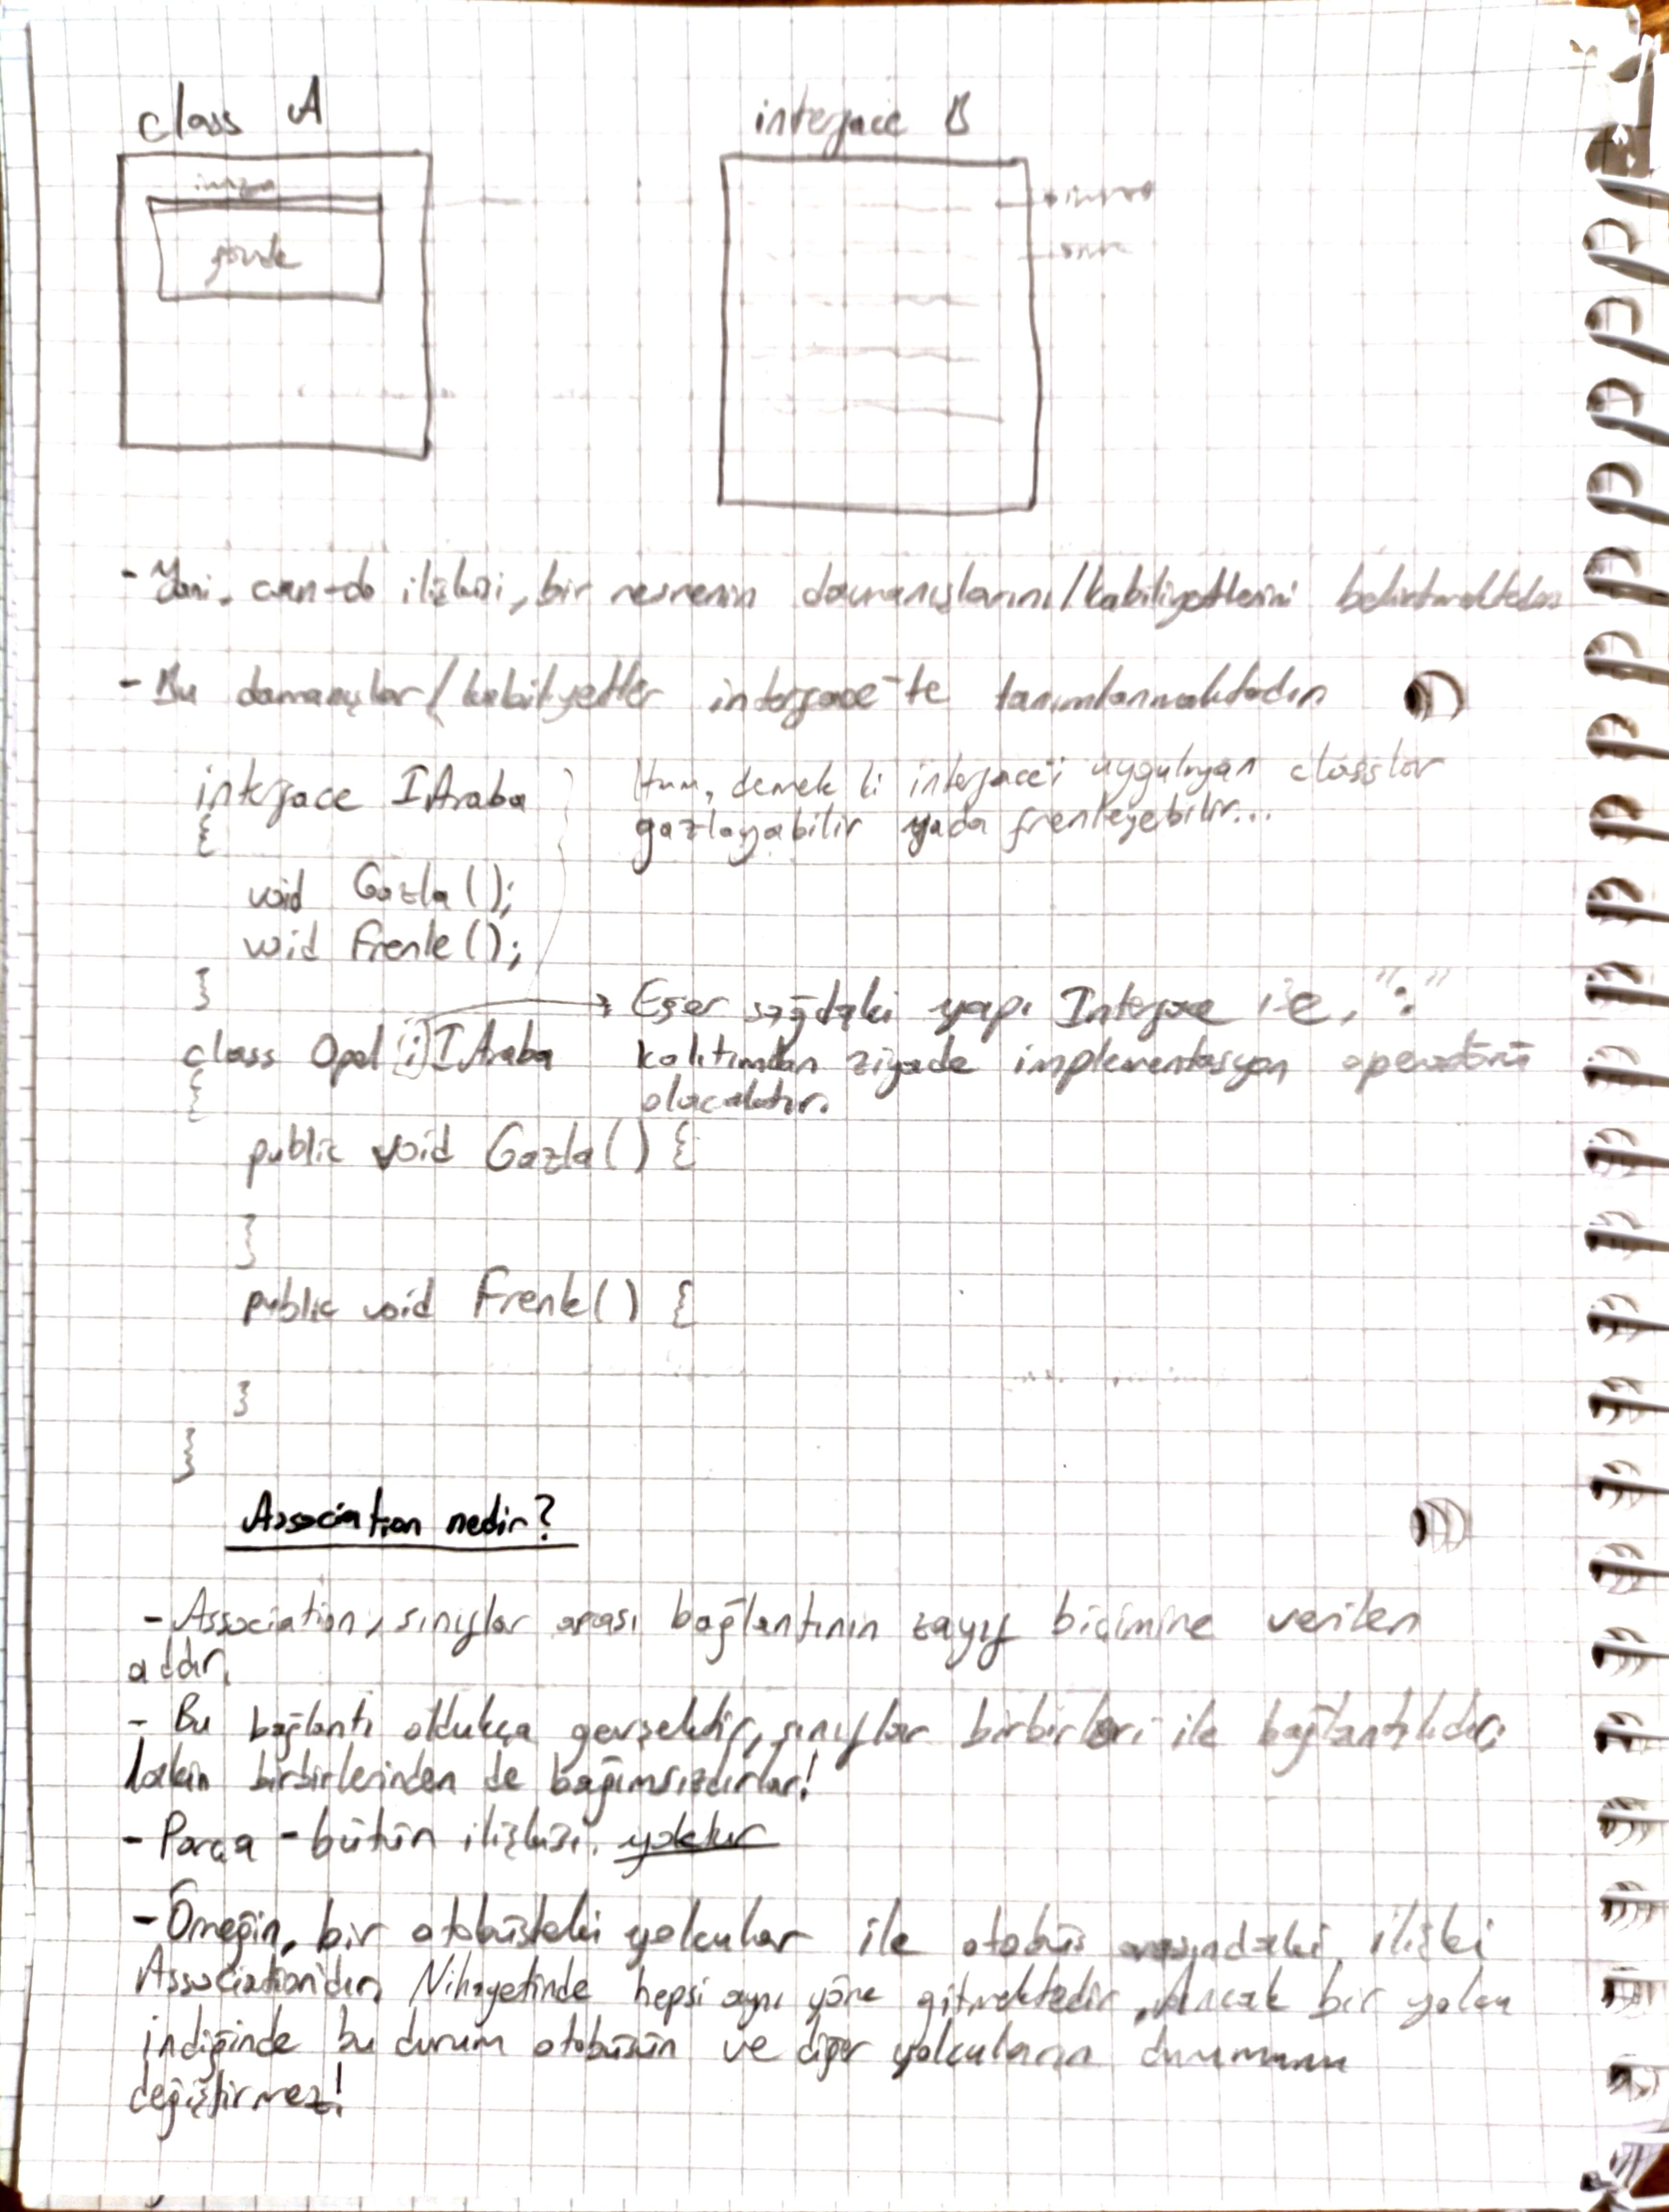 class A
interface B
imza
gövde
imza
imza
- Yani, can-do ilişkisi, bir nesnenin davranışlarını/kabiliyetlerini belirtmektedir
- Bu davranışlar/kabiliyetler interface-te tanımlanmaktadır.
interface IAraba
{
void Gazla();
void Frenle();
}
Hım, demek ki interface'i uygulayan classlar
gazlayabilir yada frenleyebilir...
class Opel : IAraba
{
Eğer sağdaki yapı Interface ise, ":"
kalıtımdan ziyade implementasyon operatörü
olacaktır.
public void Gazla() {
}
public void Frenle() {
}
}
Association nedir?
- Association, sınıflar arası bağlantının zayıf biçimine verilen
addır.
- Bu bağlantı oldukça gevşektir, sınıflar birbirleri ile bağlantılıdır,
lakin birbirlerinden de bağımsızdırlar!
- Parça - bütün ilişkisi yoktur
- Örneğin, bir otobüsteki yolcular ile otobüs arasındaki ilişki
Association'dır. Nihayetinde hepsi aynı yöne gitmektedir. Ancak bir yolcu
indiğinde bu durum otobüsün ve diğer yolcuların durumunu
değiştirmez!